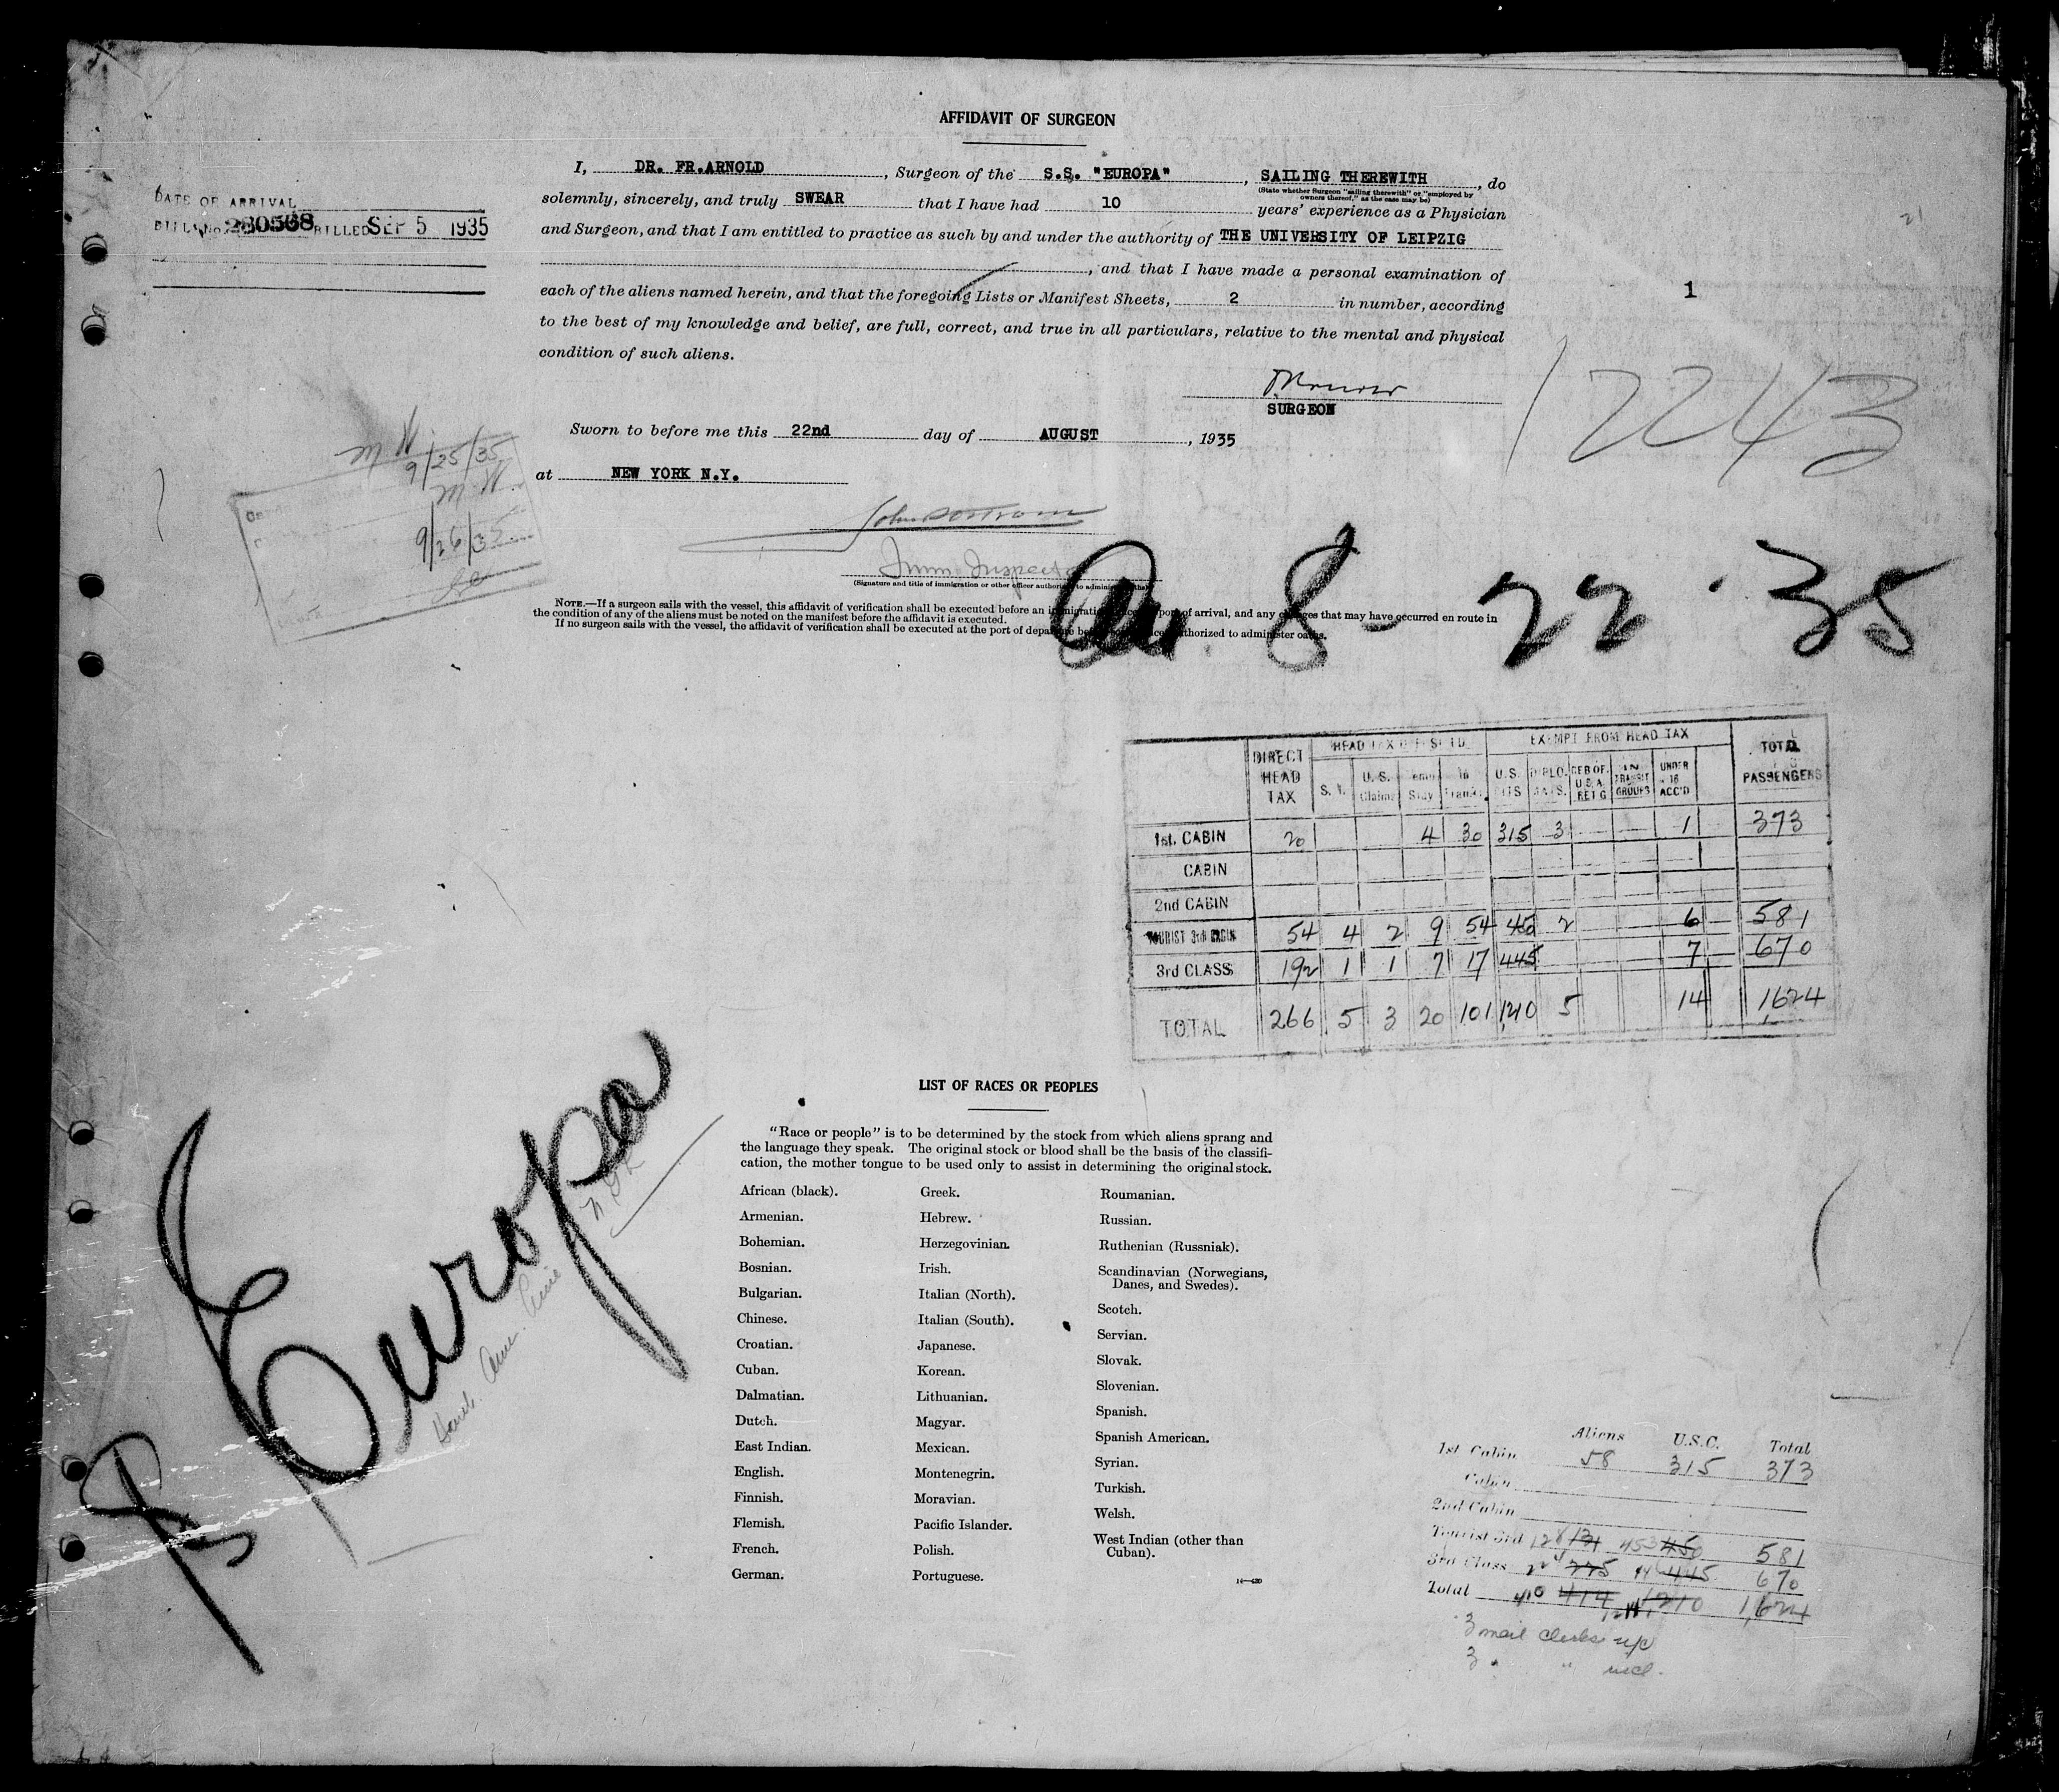 AFFIDAVIT OF SURGEON
I, DR. FR.ARNOLD, Surgeon of the S.S. "EUROPA", SAILING THEREWITH, do
(State whether Surgeon "sailing therewith" or "employed by owners thereof," as the case may be)
solemnly, sincerely, and truly SWEAR that I have had 10 years' experience as a Physician
and Surgeon, and that I am entitled to practice as such by and under the authority of THE UNIVERSITY OF LEIPZIG
, and that I have made a personal examination of
each of the aliens named herein, and that the foregoing Lists or Manifest Sheets, 2 in number, according
to the best of my knowledge and belief, are full, correct, and true in all particulars, relative to the mental and physical
condition of such aliens.
DATE OF ARRIVAL
BILL No. 280568 BILLED SEP 5 1935
21
1
SURGEON
12243
Sworn to before me this 22nd day of AUGUST, 1935
at NEW YORK N.Y.
9/25/35
9/26/35
Imm Inspector
(Signature and title of immigration or other officer authorized to administer oaths)
NOTE.—If a surgeon sails with the vessel, this affidavit of verification shall be executed before an immigration officer at port of arrival, and any changes that may have occurred en route in
the condition of any of the aliens must be noted on the manifest before the affidavit is executed.
If no surgeon sails with the vessel, the affidavit of verification shall be executed at the port of departure before an officer authorized to administer oaths.
8-22-35
DIRECT HEAD TAX EXEMPT FROM HEAD TAX TOTAL PASSENGERS
U.S. Claims U.S. CITS DIPLOMATS TRANSIT GROUPS UNDER 16 ACC'D
1st. CABIN 20 4 30 315 3 1 373
CABIN
2nd CABIN
TOURIST 3rd CABIN 54 4 2 9 54 450 2 6 581
3rd CLASS 192 1 1 7 17 445 7 670
TOTAL 266 5 3 20 101 1210 5 14 1624
SS Europa
N.G.L.
LIST OF RACES OR PEOPLES
"Race or people" is to be determined by the stock from which aliens sprang and
the language they speak. The original stock or blood shall be the basis of the classifi-
cation, the mother tongue to be used only to assist in determining the original stock.
African (black).
Armenian.
Bohemian.
Bosnian.
Bulgarian.
Chinese.
Croatian.
Cuban.
Dalmatian.
Dutch.
East Indian.
English.
Finnish.
Flemish.
French.
German.
Greek.
Hebrew.
Herzegovinian.
Irish.
Italian (North).
Italian (South).
Japanese.
Korean.
Lithuanian.
Magyar.
Mexican.
Montenegrin.
Moravian.
Pacific Islander.
Polish.
Portuguese.
Roumanian.
Russian.
Ruthenian (Russniak).
Scandinavian (Norwegians,
Danes, and Swedes).
Scotch.
Servian.
Slovak.
Slovenian.
Spanish.
Spanish American.
Syrian.
Turkish.
Welsh.
West Indian (other than
Cuban).
Aliens U.S.C. Total
1st Cabin 58 315 373
Cabin
2nd Cabin
Tourist 3rd 128 131 453 450 581
3rd Class 224 225 446 445 670
Total 410 414 1214 1210 1,624
3 mail clerks
3 " "